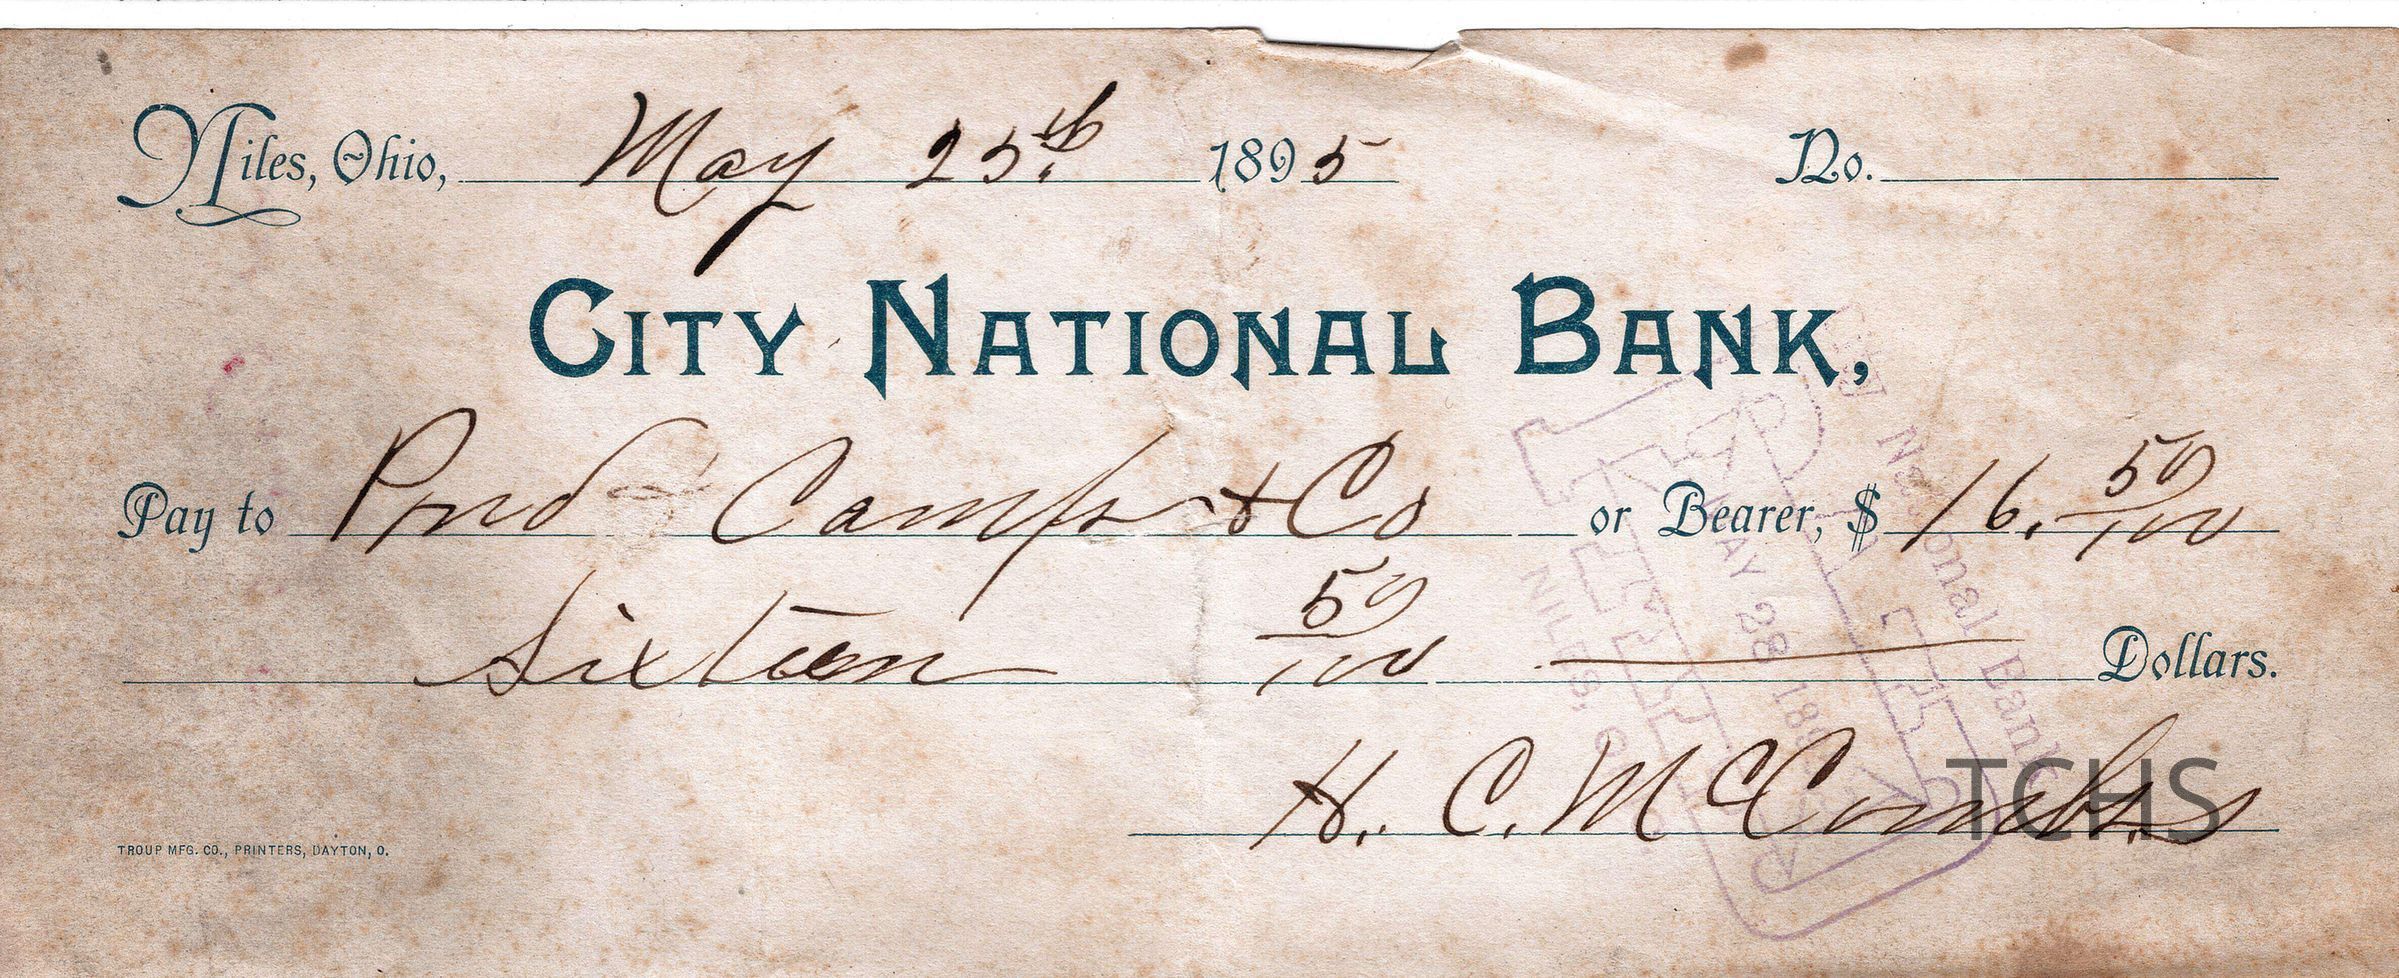 Niles, Ohio, May 25th 1895 No.
CITY NATIONAL BANK,
Pay to Pond Camp & Co or Bearer, $ 16. 50/100
Sixteen 50/100 Dollars.
H. C. McCombs
TROUP MFG. CO., PRINTERS, DAYTON, O.
City National Bank
PAID
MAY 28 189
NILES, O.
TCHS